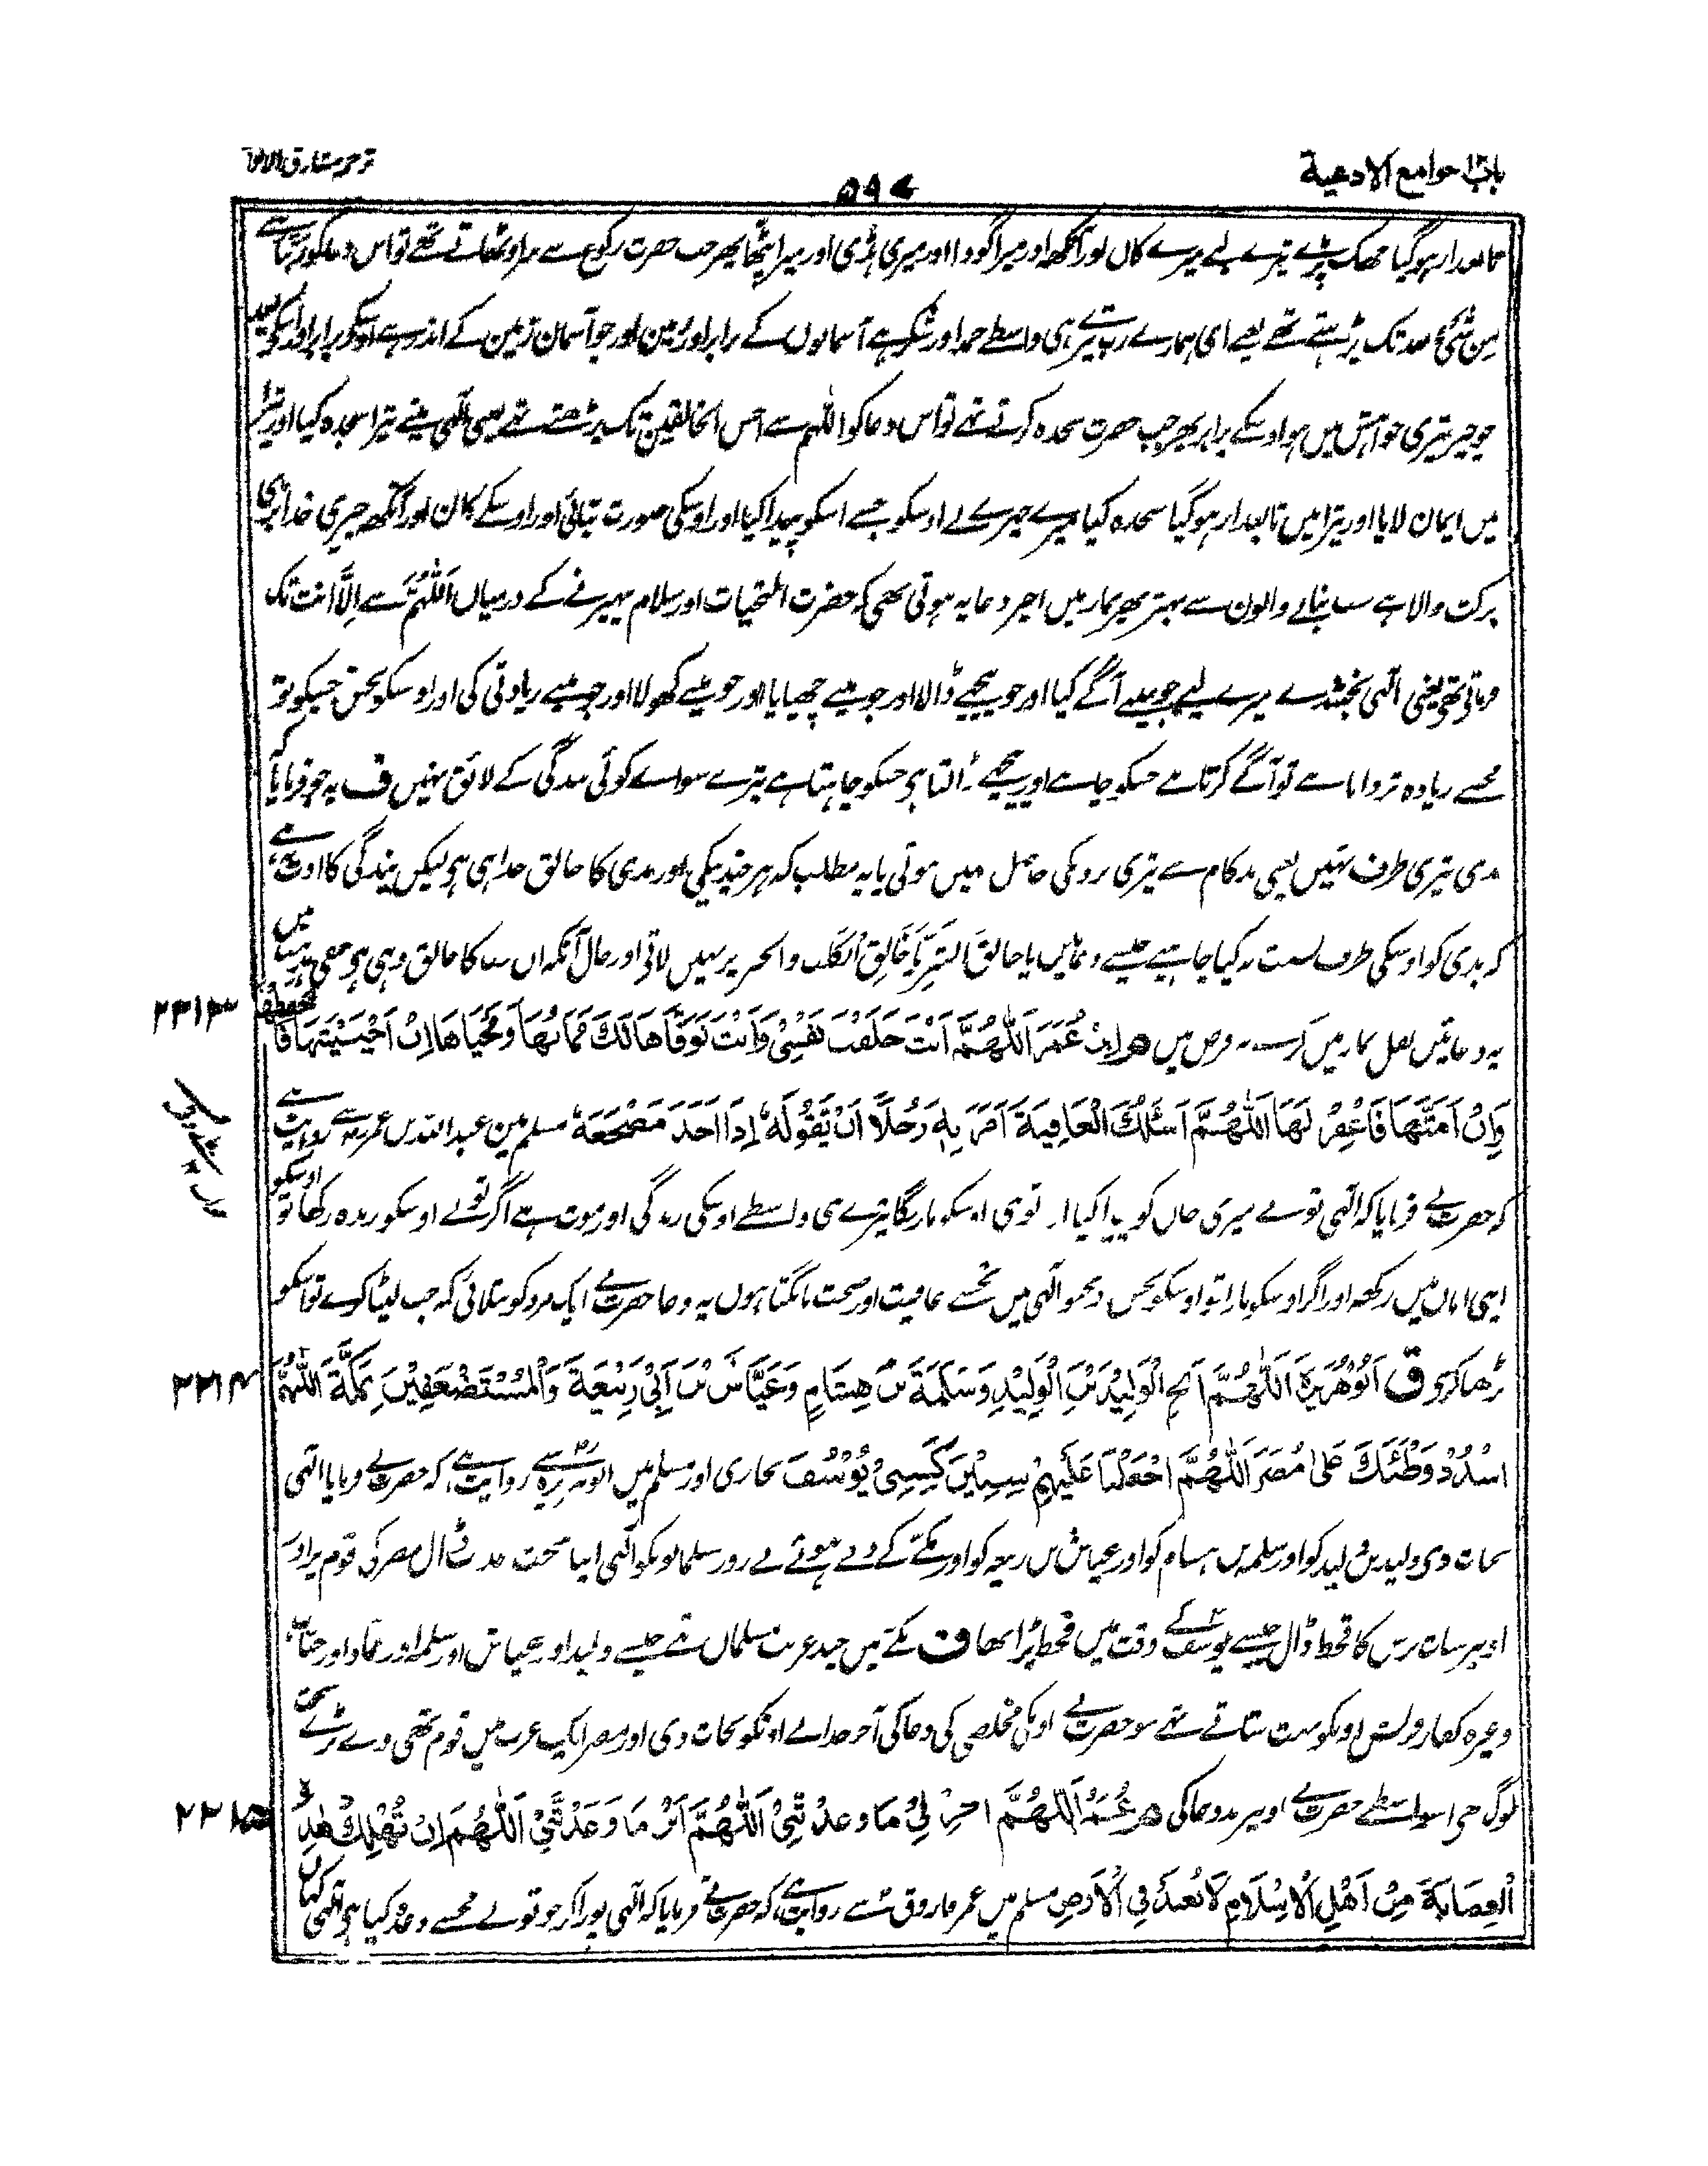 باب جوامع الادعیة
۵۹۷
ترجمہ مشارق الانوار
تابعدار ہو گیا جھک پڑے تیرے لیے میرے کان اور آنکھ اور میرا گودا اور میری ہڈی اور میرا پٹھا پھر جب حضرت رکوع سے سر اوٹھاتے تھے تو اس دعا کو ربنا سے
من شیٔ بعد تک پڑہتے تھے یعنے ای ہمارے رب تیرے ہی واسطے حمد اور شکر ہے آسمانوں کے برابر اور زمین اور جو آسمان زمین کے اندر ہے اوسکو برابر اور اسکو بعد
جو چیز تیری خواہش میں ہو اوسکے برابر پھر جب حضرت سجدہ کرتے تھے تو اس دعا کو اللہم سے احسن الخالقین تک پڑھتے تھے یعنی الٰہی مینے تیرا سجدہ کیا اور تیرا
میں ایمان لایا اور تیرا میں تابعدار ہو گیا سجدہ کیا میرے چہرے نے اوسکو جسنے اسکو پیدا کیا اور اوسکی صورت بنائی اور اوسکے کان اور آنکھ چیری خدا بڑی
برکت والا ہے سب بنانے والون سے بہتر پھر نماز میں اخیر دعا یہ ہوتی تھی کہ حضرت التحیات اور سلام پھیرنے کے درمیان اَللّٰهُمَّ سے اِلَّا انت تک
فرماتی تھی یعنی الٰہی بخشدے میرے لیے جو مینے آگے کیا اور جو پیچھے ڈالا اور جو مینے چھپایا اور جو مینے کھولا اور جو مینے زیادتی کی اور اوسکو بخش جسکو تو
مجھسے زیادہ تر دانا ہے تو آگے کرتا ہے جسکو چاہے اور پیچھے ڈالتا ہی جسکو چاہتا ہے تیرے سواے کوئی بندگی کے لائق نہیں ف یہ جو فرمایا کہ
بدی تیری طرف نہیں یعنی بد کام سے تیری نزدیکی حاصل نہیں ہوتی یا یہ مطلب کہ ہرچند نیکی اور بدی کا خالق خدا ہی ہی لیکن بندگی کا ادب یہ ہے
کہ بدی کو اوسکی طرف نسبت نہ کیا جاہیے جیسے دعا میں یا خالق الشر یا خالق الکلب والخنزیر نہیں لاتی اور حال آنکہ ان سبکا خالق وہی ہی حنفی مذہب میں
یہ دعائیں نفل نماز میں درست ہیں نہ فرض میں م ابن عُمَرَ اَللّٰهُمَّ اَنْتَ خَلَقْتَ نَفْسِیْ وَاَنْتَ تَوَفَّاهَا لَكَ مَمَاتُهَا وَمَحْیَاهَا اِنْ اَحْیَیْتَهَا فَاحْفَظْهَا
۲۲۱۳
وَاِنْ اَمَتَّهَا فَاغْفِرْ لَهَا اَللّٰهُمَّ اَسْئَلُكَ الْعَافِیَةَ اَمَرَ بِهٖ رَجُلًا اَنْ یَّقُوْلَهٗ اِذَا اَخَذَ مَضْجَعَهٗ مسلم مین عبداللہ بن عمر سے روایت ہے
کہ حضرت نے فرمایا کہ الٰہی تونے میری جان کو پیدا کیا اور توہی اوسکو ماریگا تیرے ہی واسطے اوسکی زندگی اور موت ہے اگر تونے اوسکو زندہ رکھا تو اوسکو
اپنی امان میں رکھہ اور اگر اوسکو مارا تو اوسکو بخش دیجو الٰہی میں تجھسے عافیت اور صحت مانگتا ہوں یہ دعا حضرت نے ایک مرد کو بتلائی کہ جب لیٹا کرے تو اسکو
پڑھا کرو ق اَبُوْهُرَیْرَةَ اَللّٰهُمَّ اَنْجِ الْوَلِیْدَ بْنَ الْوَلِیْدِ وَسَلَمَةَ بْنَ هِشَامٍ وَعَیَّاشَ بْنَ اَبِیْ رَبِیْعَةَ وَالْمُسْتَضْعَفِیْنَ بِمَكَّةَ اَللّٰهُمَّ
۲۲۱۴
اشْدُدْ وَطْئَتَكَ عَلٰی مُضَرَ اَللّٰهُمَّ اجْعَلْهَا عَلَیْهِمْ سِنِیْنَ كَسِنِیْ یُوْسُفَ بخاری اور مسلم میں ابوہریرہ سے روایت ہے کہ حضرت نے فرمایا الٰہی
نجات دی ولید بن ولید کو اور سلمہ بن ہشام کو اور عیاش بن ربیعہ کو اور مکے کے دبے ہوئے بے زور مسلمانونکو الٰہی اپنا سخت عذاب ڈال مضر کی قوم پر اور
اونپر سات برس کا قحط ڈال جیسے یوسف کے وقت میں قحط پڑا تھا ف مکے میں چند غریب مسلمان تھے جیسے ولید اور عیاش اور سلمہ اور عمار اور خباب
وغیرہ کفار قریش اونکو بہت ستاتے تھے سو حضرت نے اونکی مخلصی کی دعا کی آخر خدا نے اونکو نجات دی اور مضر ایک عرب میں قوم تھی وے بڑے سخت
لوگ تھی اسواسطے حضرت نے اونپر بددعا کی م عُمَرُ اَللّٰهُمَّ اَنْجِزْ لِیْ مَا وَعَدْتَّنِیْ اَللّٰهُمَّ اٰتِ مَا وَعَدْتَّنِیْ اَللّٰهُمَّ اِنْ تُهْلِكْ هٰذِهِ
۲۲۱۵
الْعِصَابَةَ مِنْ اَهْلِ الْاِسْلَامِ لَا تُعْبَدُ فِی الْاَرْضِ مسلم میں عمر فاروق سے روایت ہے کہ حضرت نے فرمایا کہ الٰہی پورا کر جو تونے مجھسے وعدہ کیا ہی الٰہی